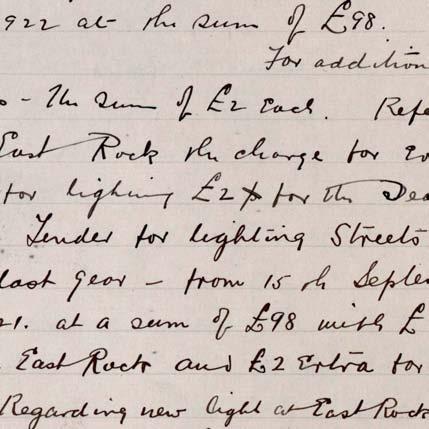 922 at the sum of £98.
For addition
- The sum of £2 each. Refe
East Rock the charge for
for lighting £2 for the
Tender for lighting Streets
last year - from 15th Septe
21. at a sum of £98 with £
East Rock and £2 Extra for
Regarding new light at East Rock